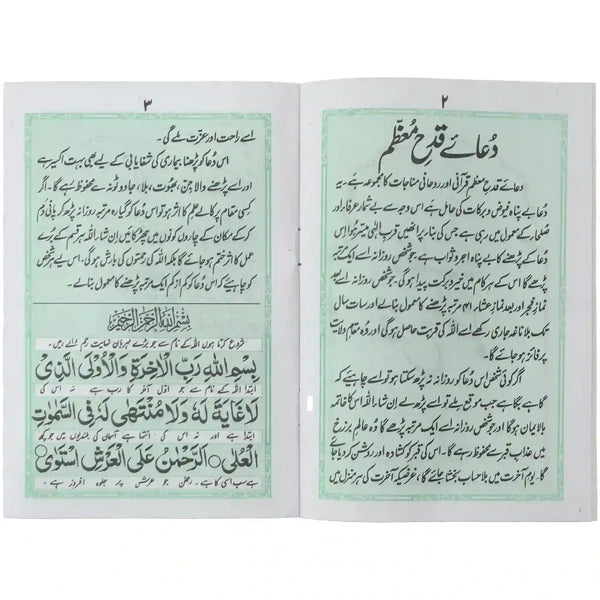 ۲
دُعائے قدحِ معظّم
دُعائے قدحِ معظم قرآنی اور روحانی مناجات کا مجموعہ ہے۔ یہ
دُعا بے پناہ فیوض و برکات کی حامل ہے اس وجہ سے بے شمار عرفا اور
صلحا کے معمول میں رہی ہے جس کی بناء پر انھیں قربِ الٰہی میسر ہوا اس
کے پڑھنے کا بے پناہ اجر و ثواب ہے جو شخص روزانہ اسے ایک مرتبہ
پڑھے گا اس کے ہر کام میں خیر و برکت پیدا ہو گی۔ جو شخص روزانہ بعد
نمازِ فجر اور بعد نمازِ عشاء ۴۱ مرتبہ پڑھنے کا معمول بنا لے اور سات سال
تک بلا ناغہ جاری رکھے اسے اللہ کی قربت حاصل ہو گی اور وہ مقامِ ولایت
پر فائز ہو جائے گا۔
اگر کوئی شخص اس دُعا کو روزانہ نہ پڑھ سکتا ہو تو اسے چاہیئے کہ
گاہے بگاہے جب موقع ملے تو اسے پڑھے گا تو انشاء اللہ اس کا خاتمہ
بالایمان ہو گا اور جو شخص اسے ایک مرتبہ پڑھے گا وہ عالمِ برزخ
میں عذابِ قبر سے محفوظ رہے گا۔ اس کی قبر کو کشادہ اور روشن کر دیا جائے
گا۔ یومِ آخرت میں بلا حساب بخشا جائے گا، غرضیکہ آخرت کی ہر منزل میں
۳
اسے راحت اور عزت ملے گی۔
اس دُعا کو پڑھنا بیماری کی شفایابی کے لیے بھی بہت اکسیر ہے
اور اسے پڑھنے والا جن، بھوت، بلا، جادو ٹونہ سے محفوظ رہے گا۔ اگر
کسی مقام پر کالے علم کا اثر ہو تو اس دُعا کو گیارہ مرتبہ روزانہ پڑھ کر پانی دم
کر کے مکان کے چاروں کونوں میں چھڑکائیں ان شاء اللہ ہر قسم کے بُرے
عمل کا اثر ختم ہو جائے گا بلکہ اللہ کی رحمتوں کی بارش ہو گی۔ اس لیے ہر شخص
کو چاہیئے کہ اس دُعا کو کم از کم ایک مرتبہ پڑھنے کا معمول بنا لے۔
بِسْمِ اللّٰهِ الرَّحْمٰنِ الرَّحِيْمِ
شروع کرتا ہوں اللہ کے نام سے جو بڑے مہربان نہایت رحم والے ہیں۔
بِسْمِ اللّٰهِ رَبِّ الْاٰخِرَةِ وَالْاُوْلٰى الَّذِىْ
ابتدا اللہ کے نام سے جو اول آخر کا رب ہے نہ اس کی
لَا غَايَةَ لَهٗ وَلَا مُنْتَهٰى لَهٗ فِى السَّمٰوٰتِ
ابتدا ہے اور نہ اس کی انتہا ہے آسمان کی بلندیوں میں جو کچھ
الْعُلٰى ○ اَلرَّحْمٰنُ عَلَى الْعَرْشِ اسْتَوٰى ○
ہے سب اسی کا ہے۔ رحمٰن جو عرش پر جلوہ افروز ہے۔